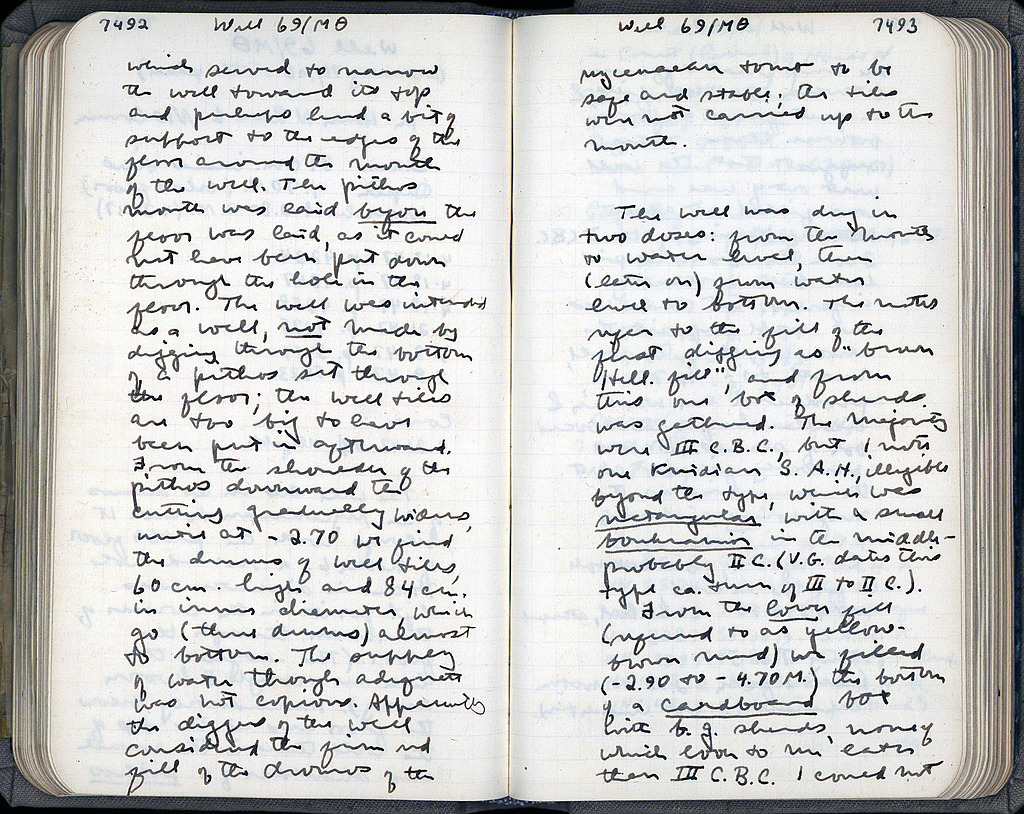 7492 Well 69/ΜΘ
which served to narrow
the well toward its top
and perhaps lend a bit of
support to the edges of the
floor around the mouth
of the well. The pithos
mouth was laid before the
floor was laid, as it could
not have been put down
through the hole in the
floor. The well was intended
as a well, not made by
digging through the bottom
of a pithos set through
the floor; the well tiles
are too big to have
been put in afterward.
From the shoulder of the
pithos downward the
cutting gradually widens,
until at -2.70 we find
the drums of well tiles,
60 cm. high and 84 cm.
in inner diameter, which
go (three drums) almost
to bottom. The supply
of water though adequate
was not copious. Apparently
the diggers of the well
considered the firm red
fill of the dromos of the
Well 69/ΜΘ 7493
Mycenaean tomb to be
safe and stable; the tiles
were not carried up to the
mouth.
The well was dug in
two doses: from the mouth
to water level, then
(later on) from water
level to bottom. The notes
refer to the fill of the
first digging as "brown
Hell. fill", and from
this one box of sherds
was gathered. The majority
were III C. B.C., but I note
one Knidian S.A.H., illegible
beyond the type, which was
rectangular, with a small
boukranion in the middle -
probably II C. (V.G. dates this
type ca. turn of III to II C.).
From the lower fill
(referred to as yellow-
brown mud) we filled
(-2.90 to -4.70 M.) the bottom
of a cardboard box
with b.g. sherds, none of
which look to me later
than III C. B.C. I could not